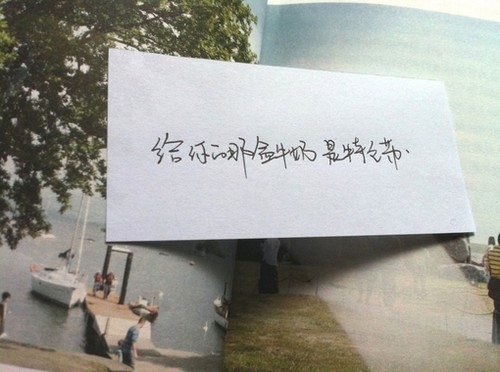 给你的那盒牛奶是特仑苏.